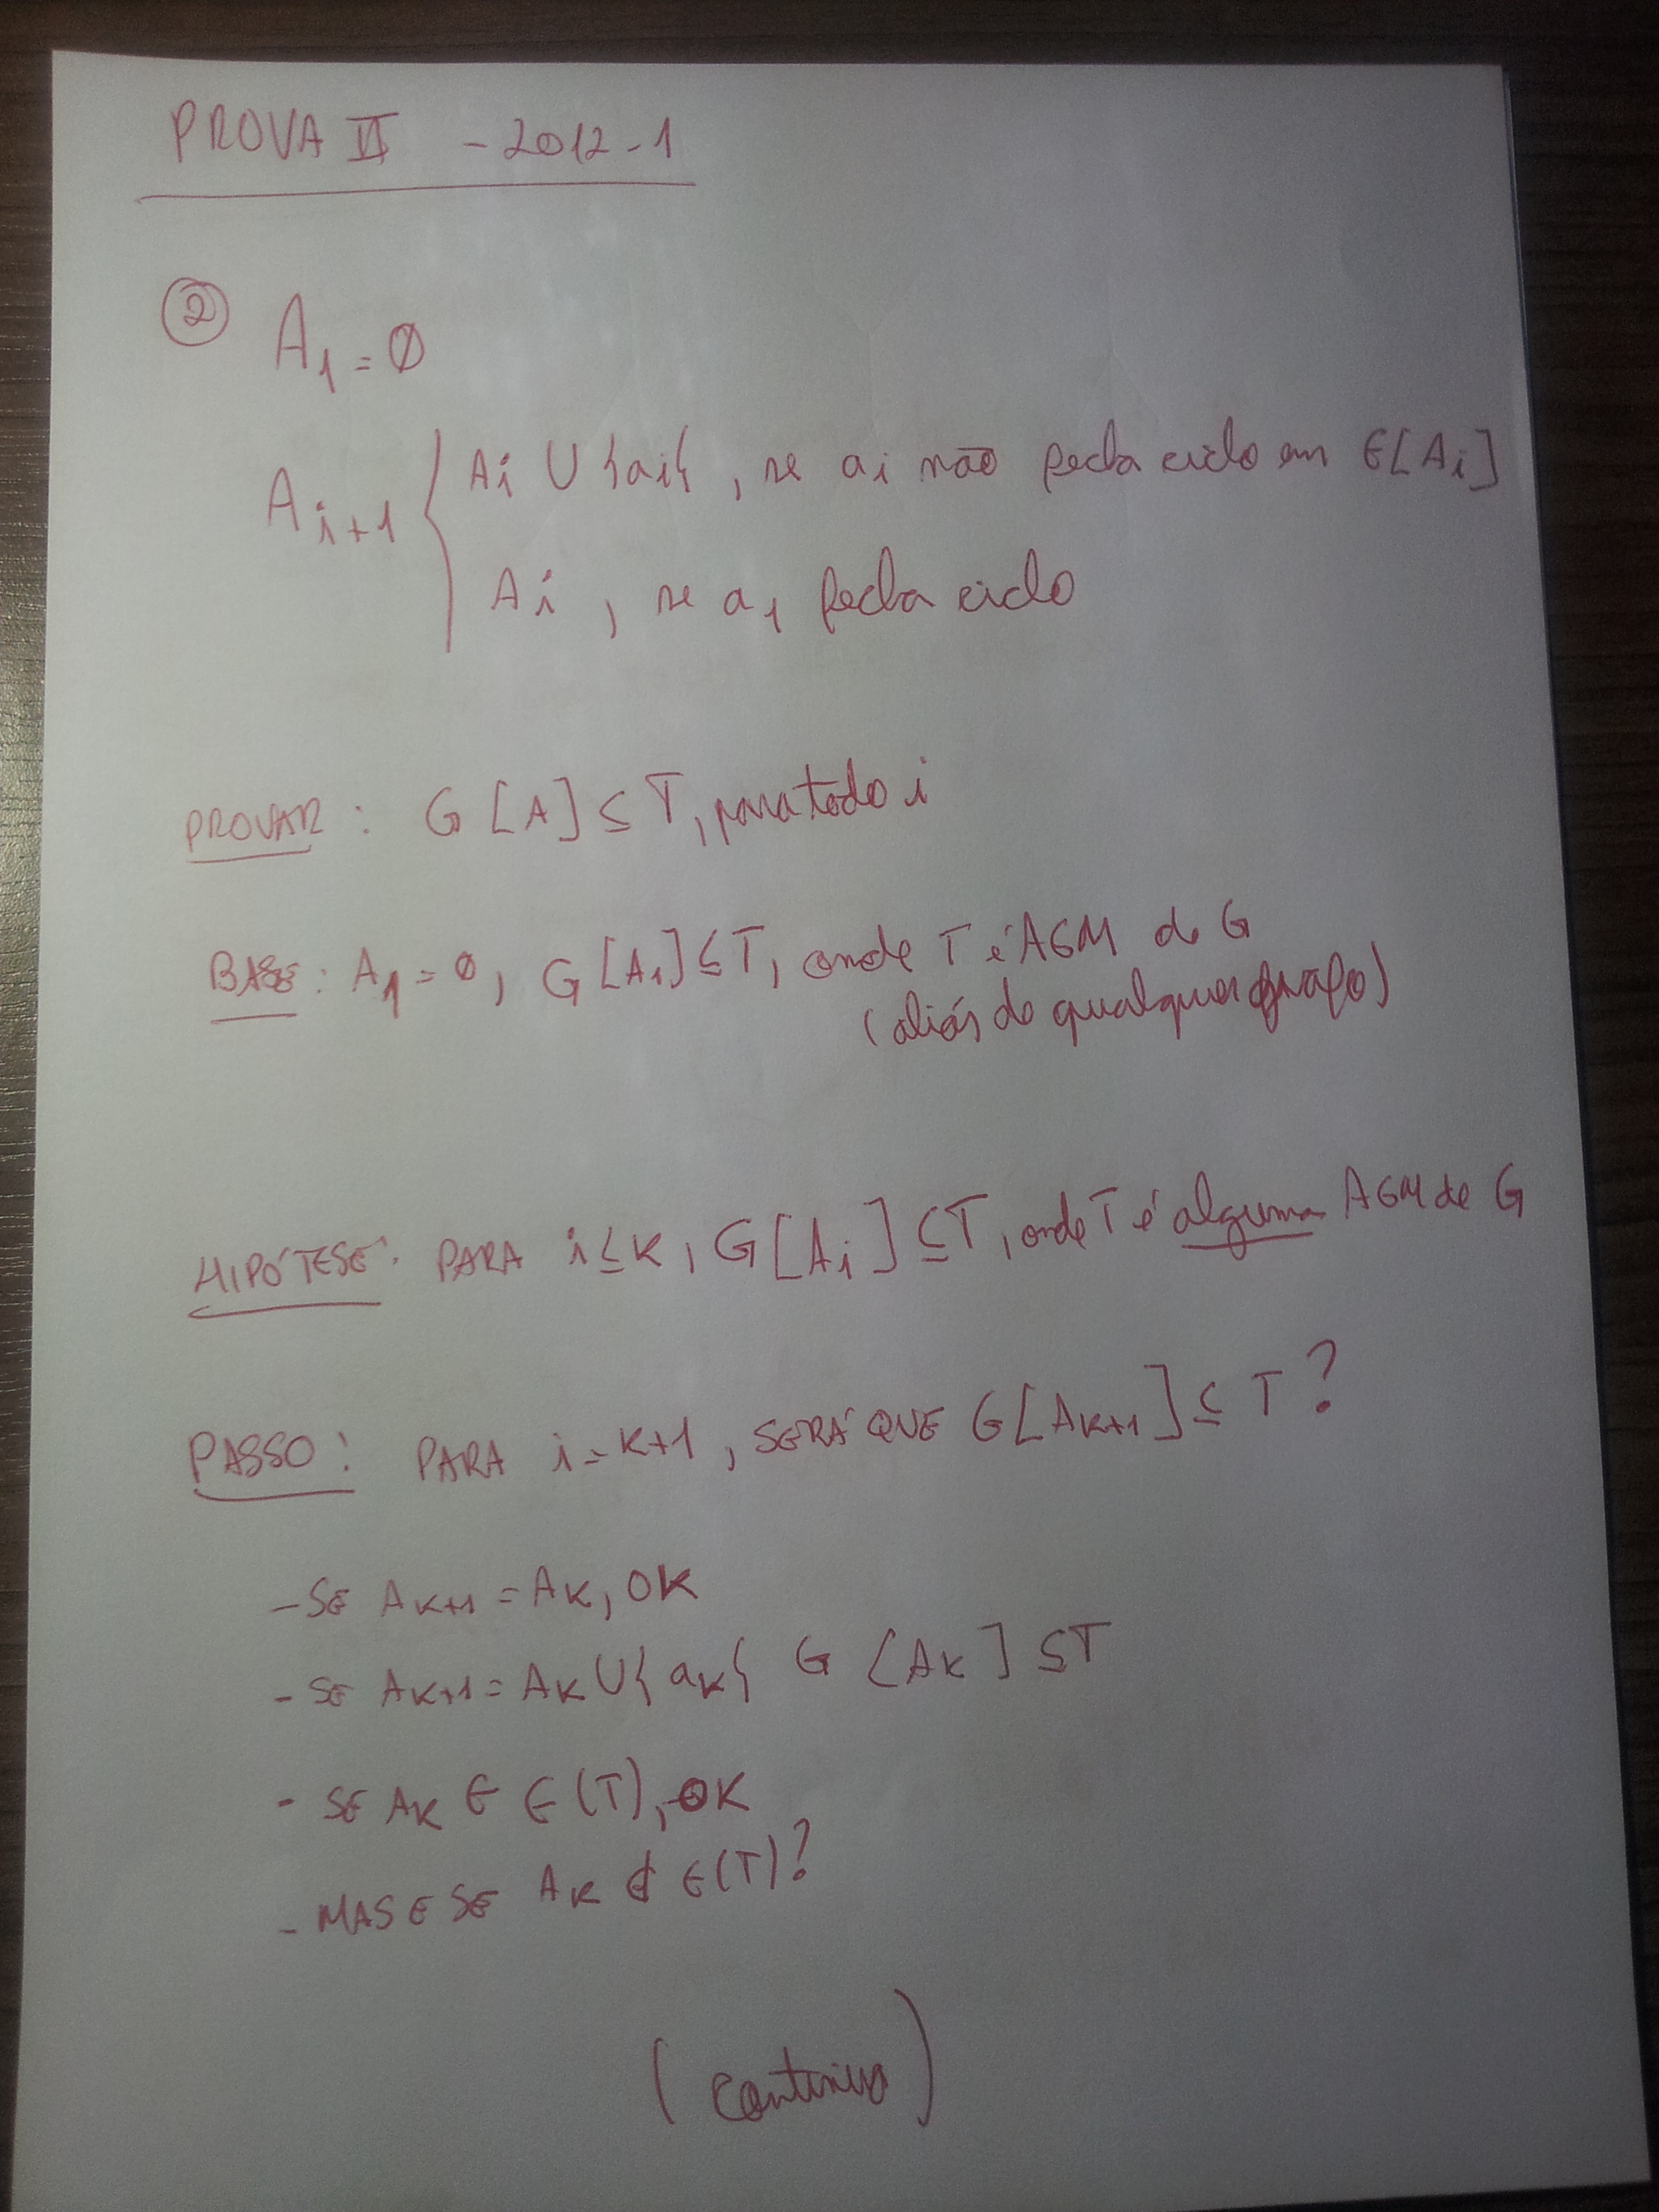 PROVA II - 2012-1
② A₁ = ∅
Aᵢ₊₁ { Aᵢ ∪ {aᵢ}, se aᵢ não fecha ciclo em G[Aᵢ]
Aᵢ, se a₁ fecha ciclo
PROVAR: G[A] ⊆ T, para todo i
BASE: A₁ = ∅, G[A₁] ⊆ T, onde T é AGM de G
(aliás de qualquer grafo)
HIPÓTESE: PARA i ≤ K, G[Aᵢ] ⊆ T, onde T é alguma AGM de G
PASSO: PARA i = K+1, SERÁ QUE G[AK+1] ⊆ T?
- SE AK+1 = AK, OK
- SE AK+1 = AK ∪ {aK} G [AK] ⊆ T
- SE AK ∈ E(T), OK
- MAS E SE AK ∉ E(T)?
(continua)